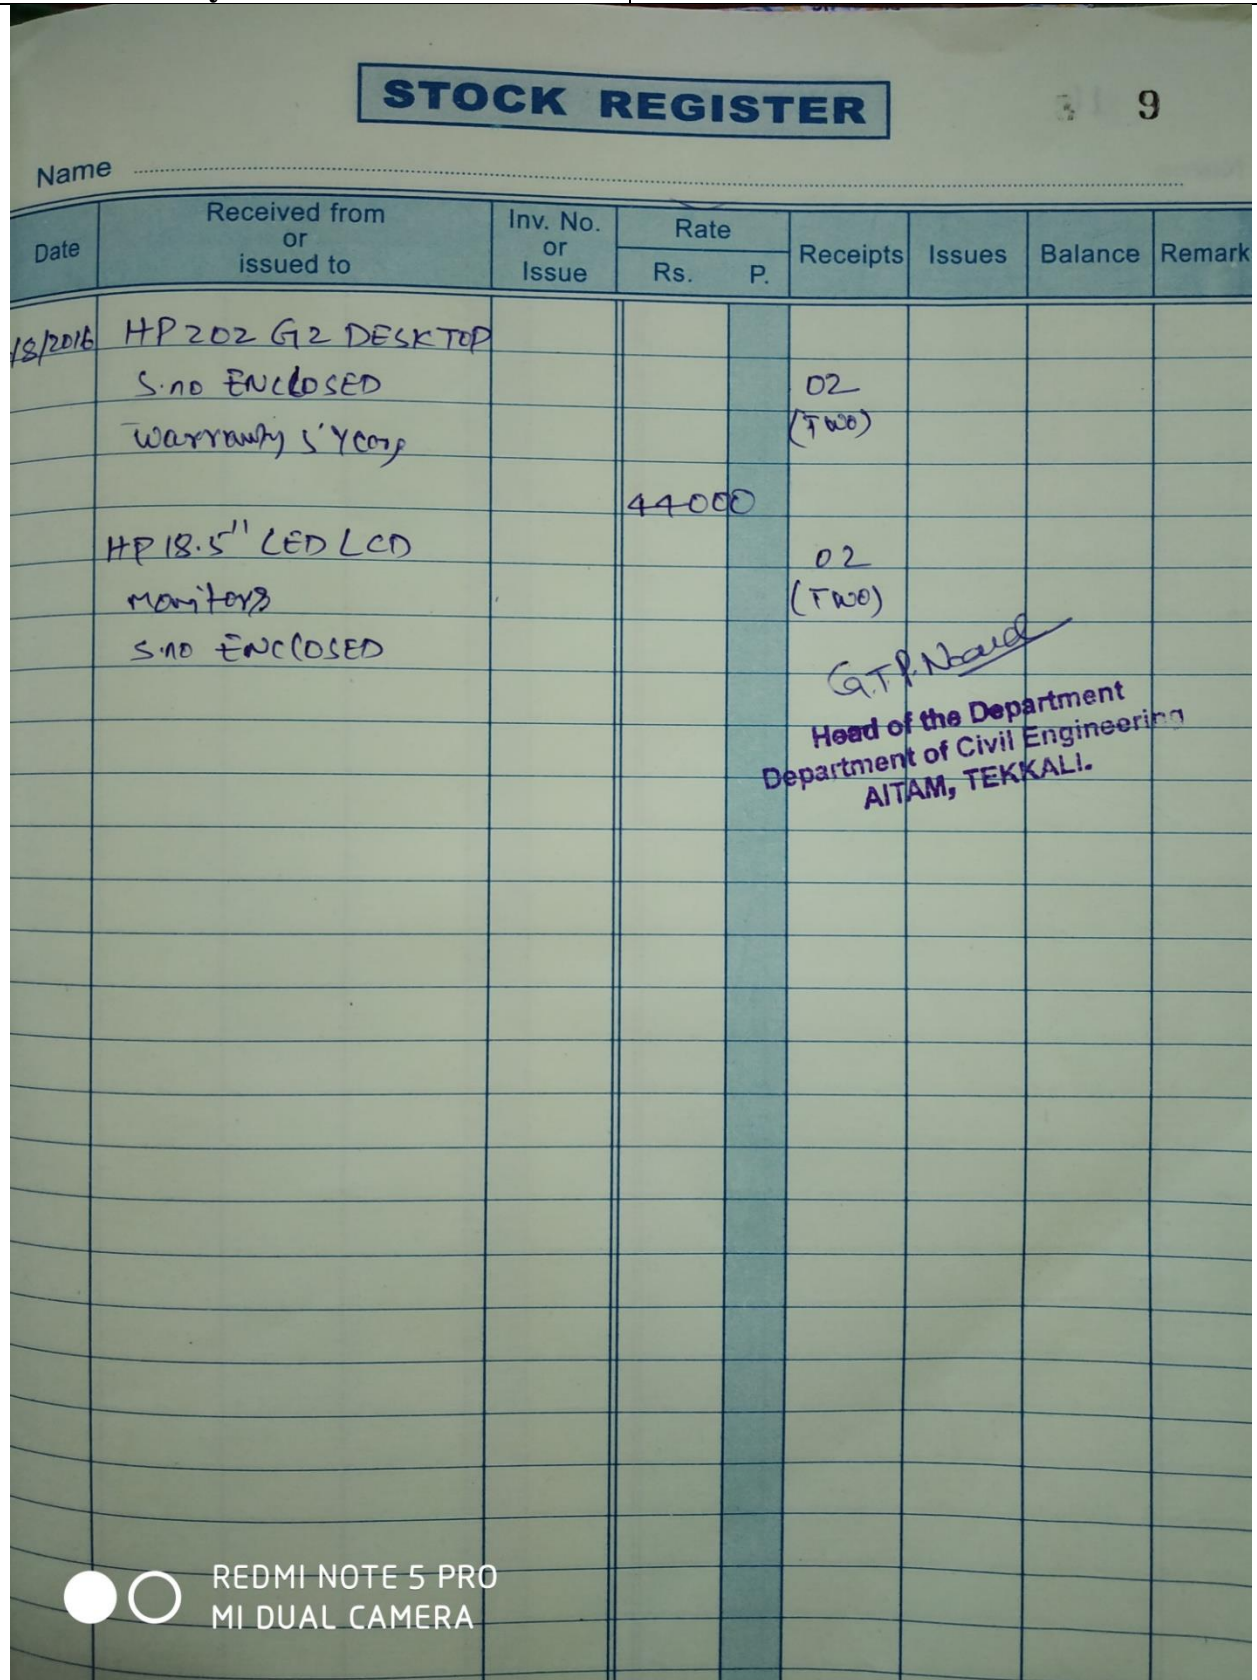 STOCK REGISTER
9
Name
Date
Received from
or
issued to
Inv. No.
or
Issue
Rate
Rs. P.
Receipts
Issues
Balance
Remark
/8/2016 HP 202 G2 DESKTOP
S.no ENCLOSED 02
Warranty 5 Years (TWO)
44000
HP 18.5" LED LCD 02
Monitors (TWO)
S.no ENCLOSED
G.T.P.
Head of the Department
Department of Civil Engineering
AITAM, TEKKALI.
REDMI NOTE 5 PRO
MI DUAL CAMERA